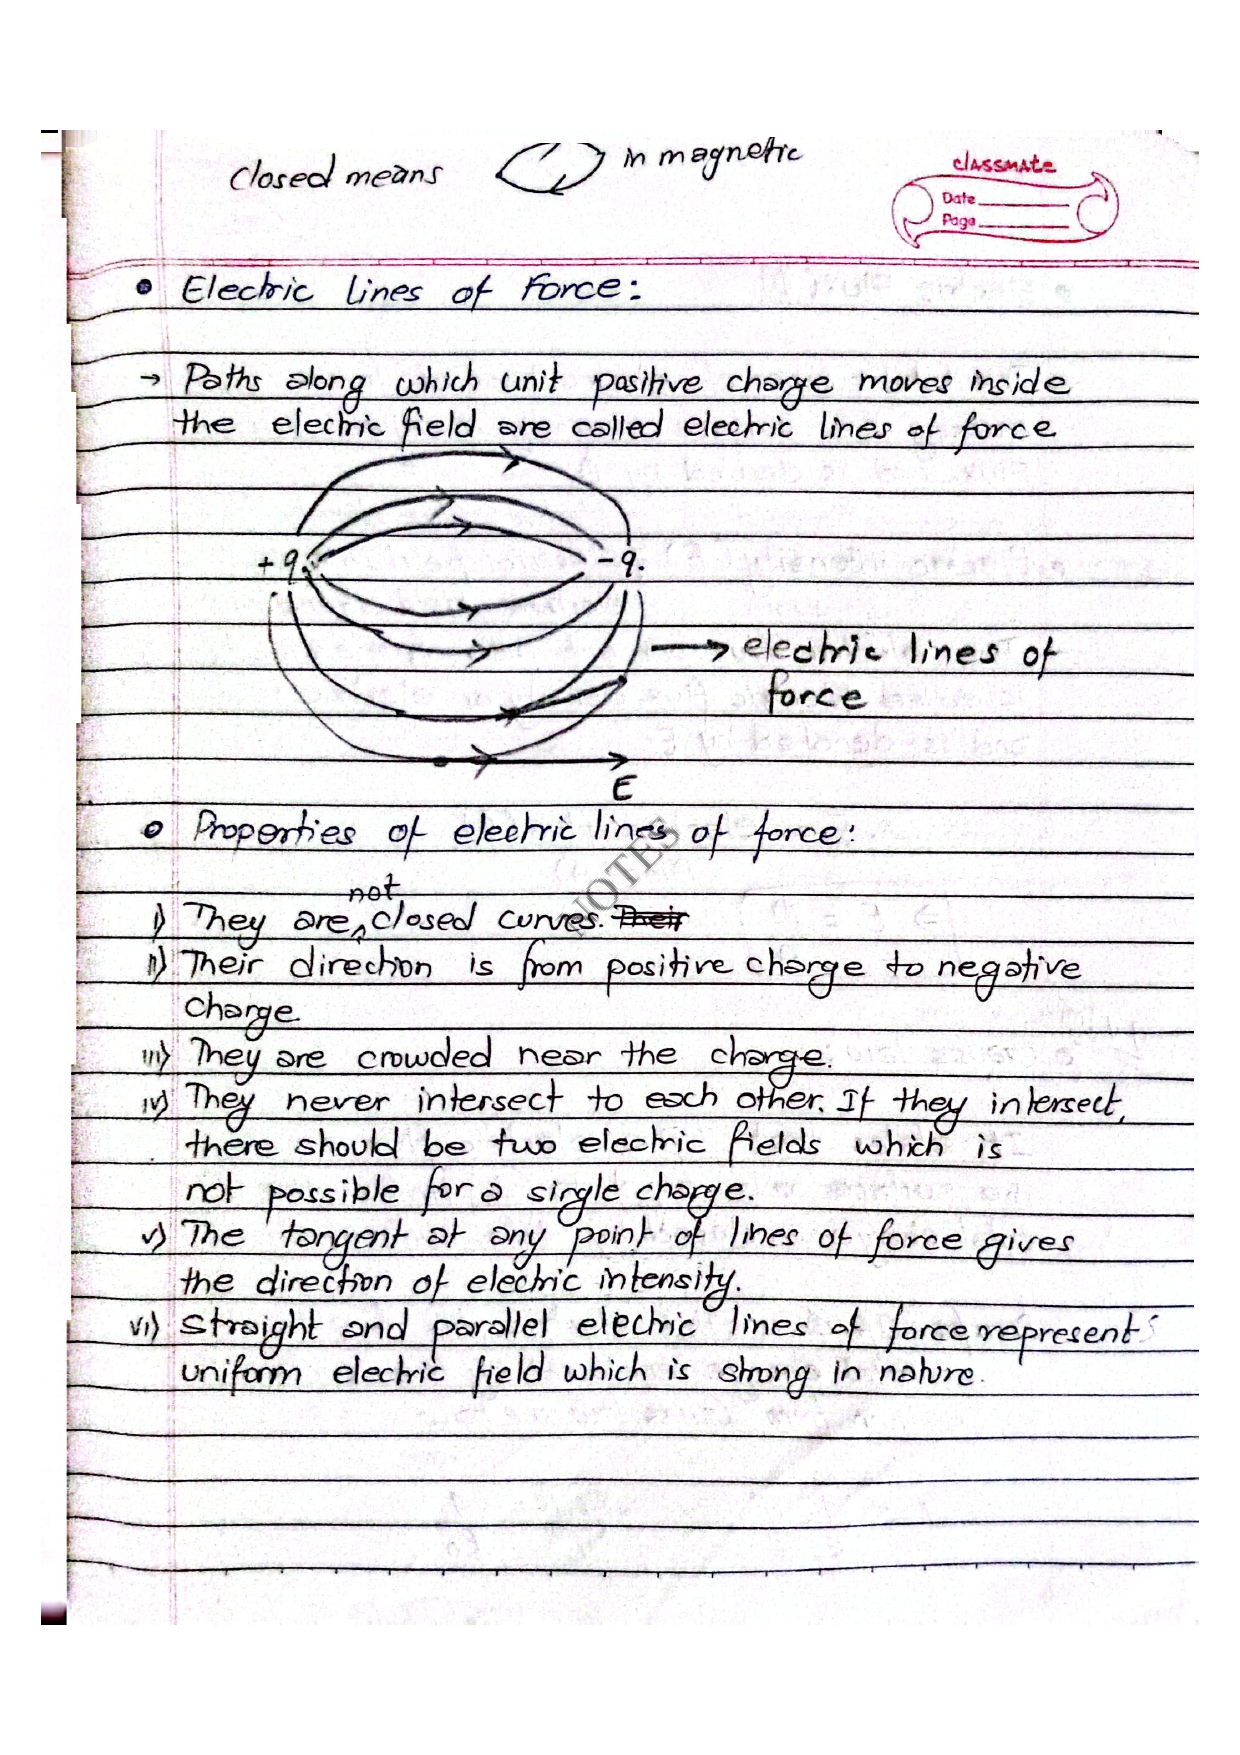 closed means in magnetic
classmate
Date
Page
Electric lines of Force:
→ Paths along which unit positive charge moves inside
the electric field are called electric lines of force
+q. -q.
→ electric lines of
force
E
Properties of electric lines of force:
not
i) They are ^ closed curves. Their
ii) Their direction is from positive charge to negative
charge
iii) They are crowded near the charge.
iv) They never intersect to each other. If they intersect,
there should be two electric fields which is
not possible for a single charge.
v) The tangent at any point of lines of force gives
the direction of electric intensity.
vi) Straight and parallel electric lines of force represents
uniform electric field which is strong in nature.
NOTES